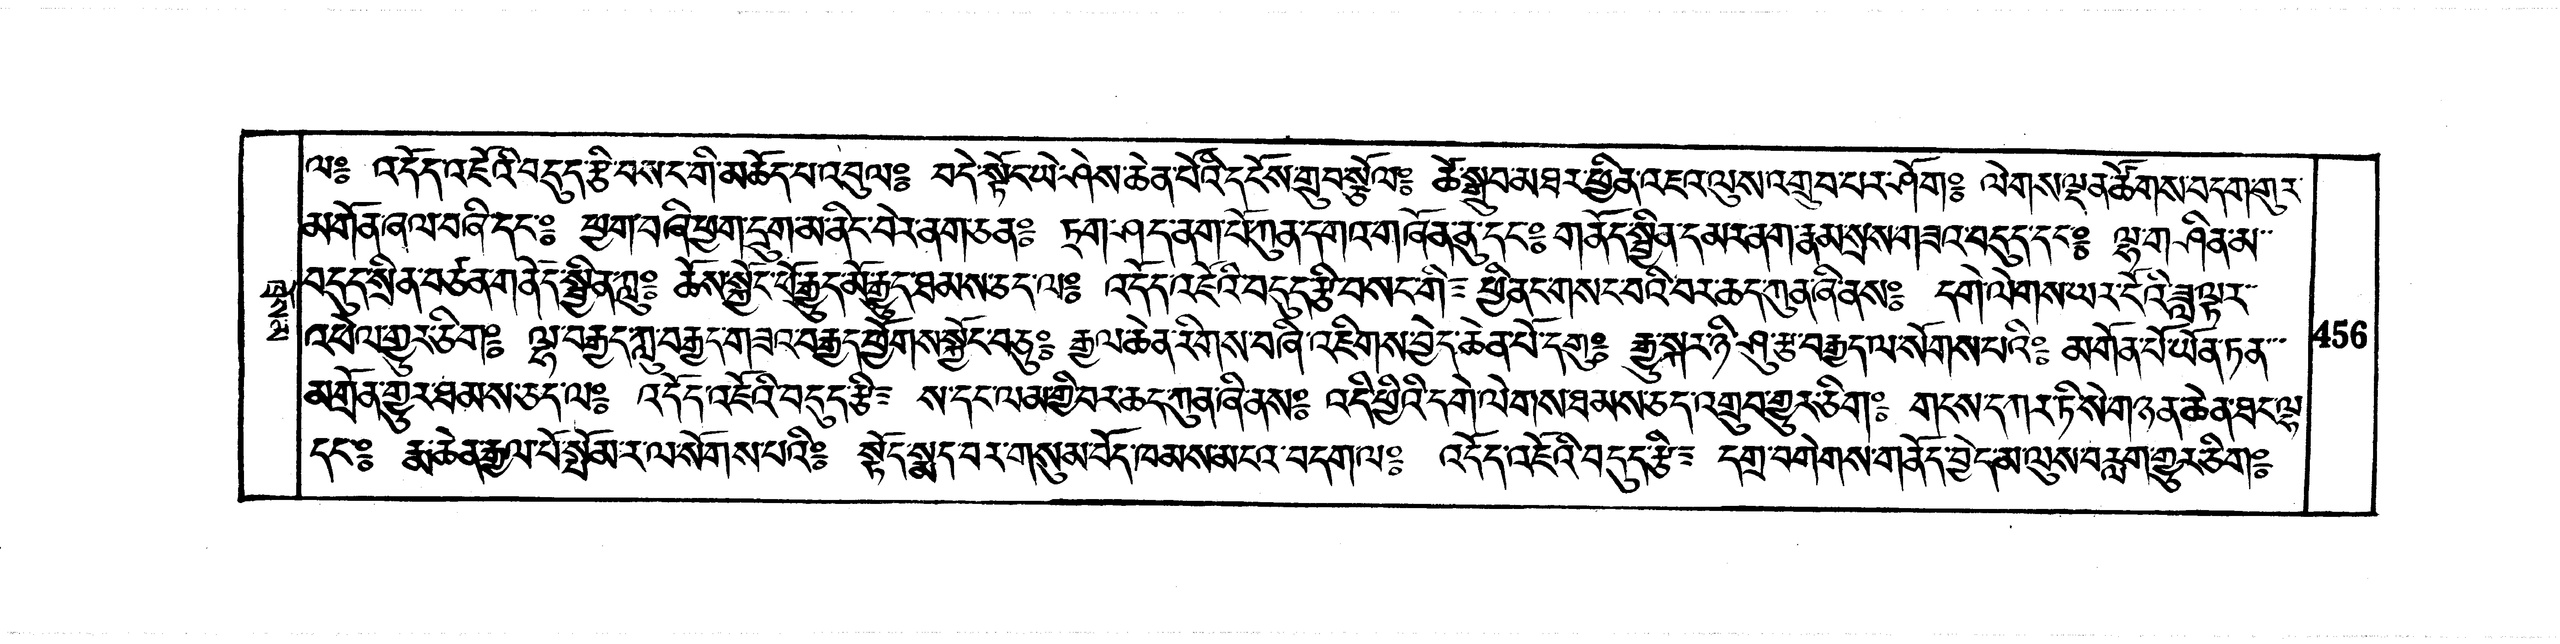 ལ༔ འདོད་འཇོའི་བདུད་རྩི་བསང་གི་མཆོད་པ་འབུལ༔ བདེ་སྟོང་ཡེ་ཤེས་ཆེན་པོའི་དངོས་གྲུབ་སྩོལ༔ ཚེ་སྒྲུབ་མཐར་ཕྱིན་འཇའ་ལུས་འགྲུབ་པར་ཤོག༔ ལེགས་ལྡན་ཚོགས་བདག་གུར་
མགོན་ཞལ་བཞི་དང་༔ ཕྱག་བཞི་ཕྱག་དྲུག་མ་ནིང་བེར་ནག་ཅན༔ ཏྲག་ཤད་ནག་པོ་ཀུན་དགའ་གཞོན་ནུ་དང་༔ གནོད་སྦྱིན་དམར་ནག་རྣམ་སྲས་གཟའ་བདུད་དང་༔ ལྷ་ག་ཤིན་མ་
བདུད་སྲིན་བཙན་གནོད་སྦྱིན་ཀླུ༔ ཆོས་སྐྱོང་ཕོ་རྒྱུད་མོ་རྒྱུད་ཐམས་ཅད་ལ༔ འདོད་འཇོའི་བདུད་རྩི་བསང་གི༔ ཕྱི་ནང་གསང་བའི་བར་ཆད་ཀུན་ཞི་ནས༔ དགེ་ལེགས་ཡར་ངོའི་ཟླ་ལྟར་
འཕེལ་གྱུར་ཅིག༔ ལྷ་བརྒྱད་ཀླུ་བརྒྱད་གཟའ་བརྒྱད་ཕྱོགས་སྐྱོང་བཅུ༔ རྒྱལ་ཆེན་རིགས་བཞི་འཇིགས་བྱེད་ཆེན་པོ་དགུ༔ རྒྱུ་སྐར་ཉི་ཤུ་རྩ་བརྒྱད་ལ་སོགས་པའི༔ མགོན་པོ་ཡོན་ཏན་
མགྲོན་གྱུར་ཐམས་ཅད་ལ༔ འདོད་འཇོའི་བདུད་རྩི༔ ས་དང་ལམ་གྱི་བར་ཆད་ཀུན་ཞི་ནས༔ འདི་ཕྱིའི་དགེ་ལེགས་ཐམས་ཅད་འགྲུབ་གྱུར་ཅིག༔ གངས་དཀར་ཏི་སེ་གཉན་ཆེན་ཐང་ལྷ་
དང་༔ རྨ་ཆེན་རྒྱལ་པོ་སྤོམ་ར་ལ་སོགས་པའི༔ སྟོད་སྨད་བར་གསུམ་བོད་ཁམས་མངའ་བདག་ལ༔ འདོད་འཇོའི་བདུད་རྩི༔ དགྲ་བགེགས་གནོད་བྱེད་མ་ལུས་བརླག་གྱུར་ཅིག༔
456